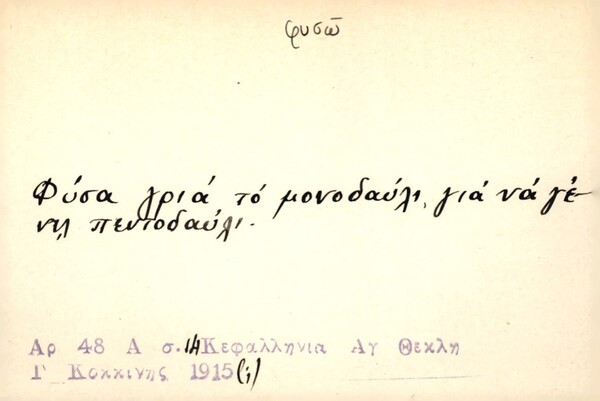 φυσῶ
Φύσα γριά τό μονοδαύλι, γιά νά γέ-
νῃ πεντοδαύλι.
Αρ 48 Α σ. 14 Κεφαλληνια Αγ Θεκλη
Γ Κοκκινης 1915 (;)